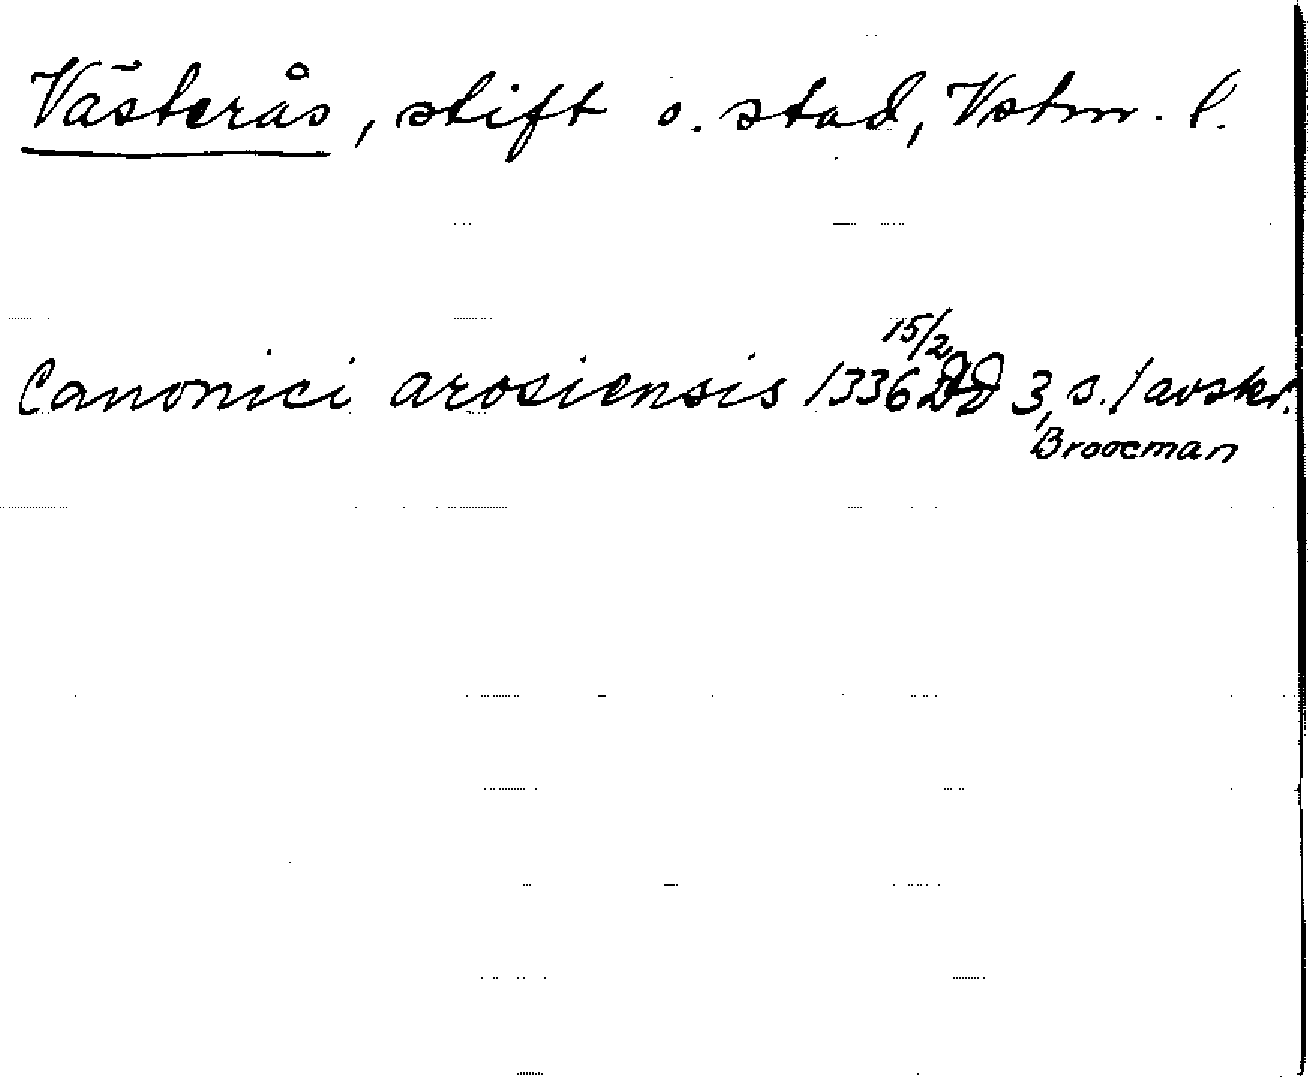 Västerås, stift o. stad, Vstm. l.
Canonici arosiensis 1336 15/2 DD 3, s. / avskr.
Broocman